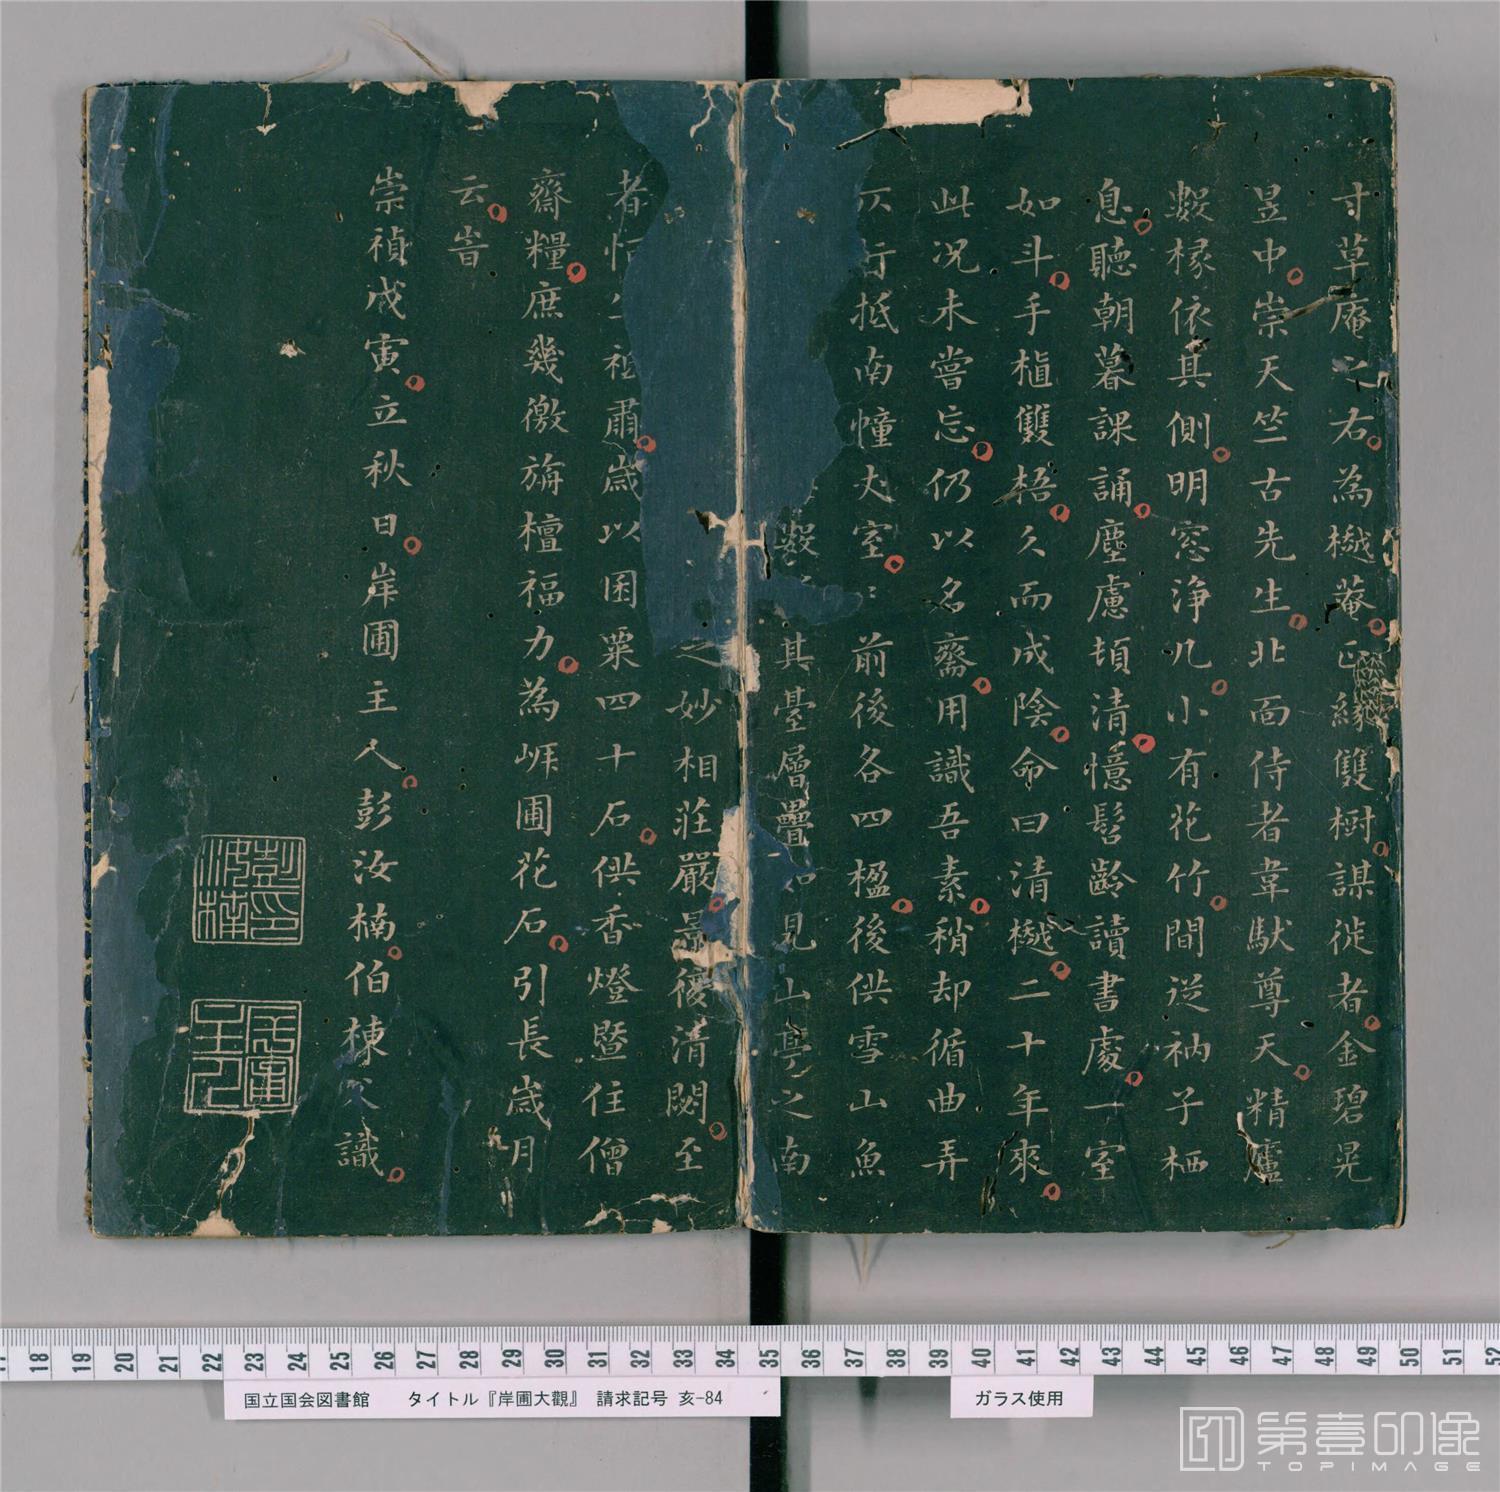 寸草庵之右為樾菴正緣雙樹謀徙者金碧晃
昱中崇天竺古先生北面侍者韋馱尊天精廬
數椽依其側明窓浄几小有花竹間逆衲子栖
息聽朝暮課誦塵慮頓清憶髫齡讀書處一室
如斗手植雙梧久而成陰命曰清樾二十年來
此況未嘗忘仍以名齋用識吾素稍却循曲弄
行抵南幢丈室前後各四楹後供雪山魚
數其臺層疊見山亭之南
之妙相莊嚴景復清閟至
者祖肅歲以囷粟四十石供香燈暨住僧
齋糧庶幾徼旃檀福力為岸圃花石引長歲月
云旹
崇禎戊寅立秋日岸圃主人彭汝楠伯棟父識
彭汝楠印
岸圃主人
17 18 19 20 21 22 23 24 25 26 27 28 29 30 31 32 33 34 35 36 37 38 39 40 41 42 43 44 45 46 47 48 49 50 51 52
国立国会図書館 タイトル『岸圃大觀』 請求記号 亥-84
ガラス使用
第壹印像
TOPIMAGE